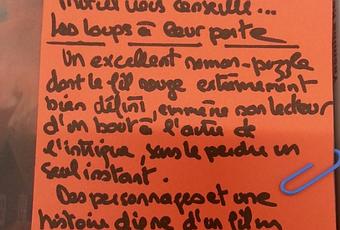 vous conseille...
Les loups à leur porte
Un excellent roman-puzzle
dont le fil rouge extrêmement
bien défini, emmène son lecteur
d'un bout à l'autre de
l'intrigue, sans le perdre un
seul instant.
Des personnages et une
histoire digne d'un film